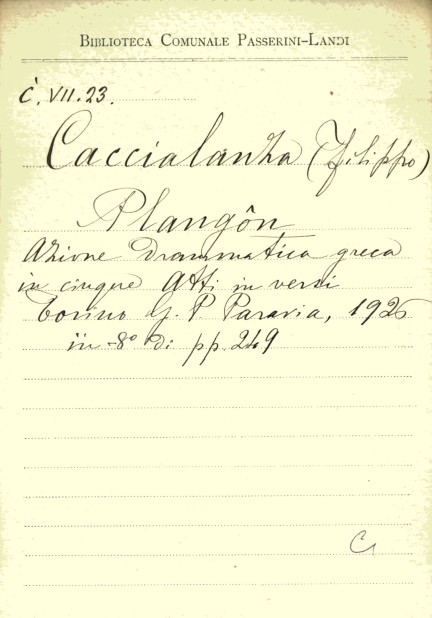 BIBLIOTECA COMUNALE PASSERINI-LANDI
C. VII. 23.
Caccialanza (Filippo)
Plangôn
Azione drammatica greca
in cinque Atti in versi
Torino G. P. Paravia, 1926
in-8° di pp. 249